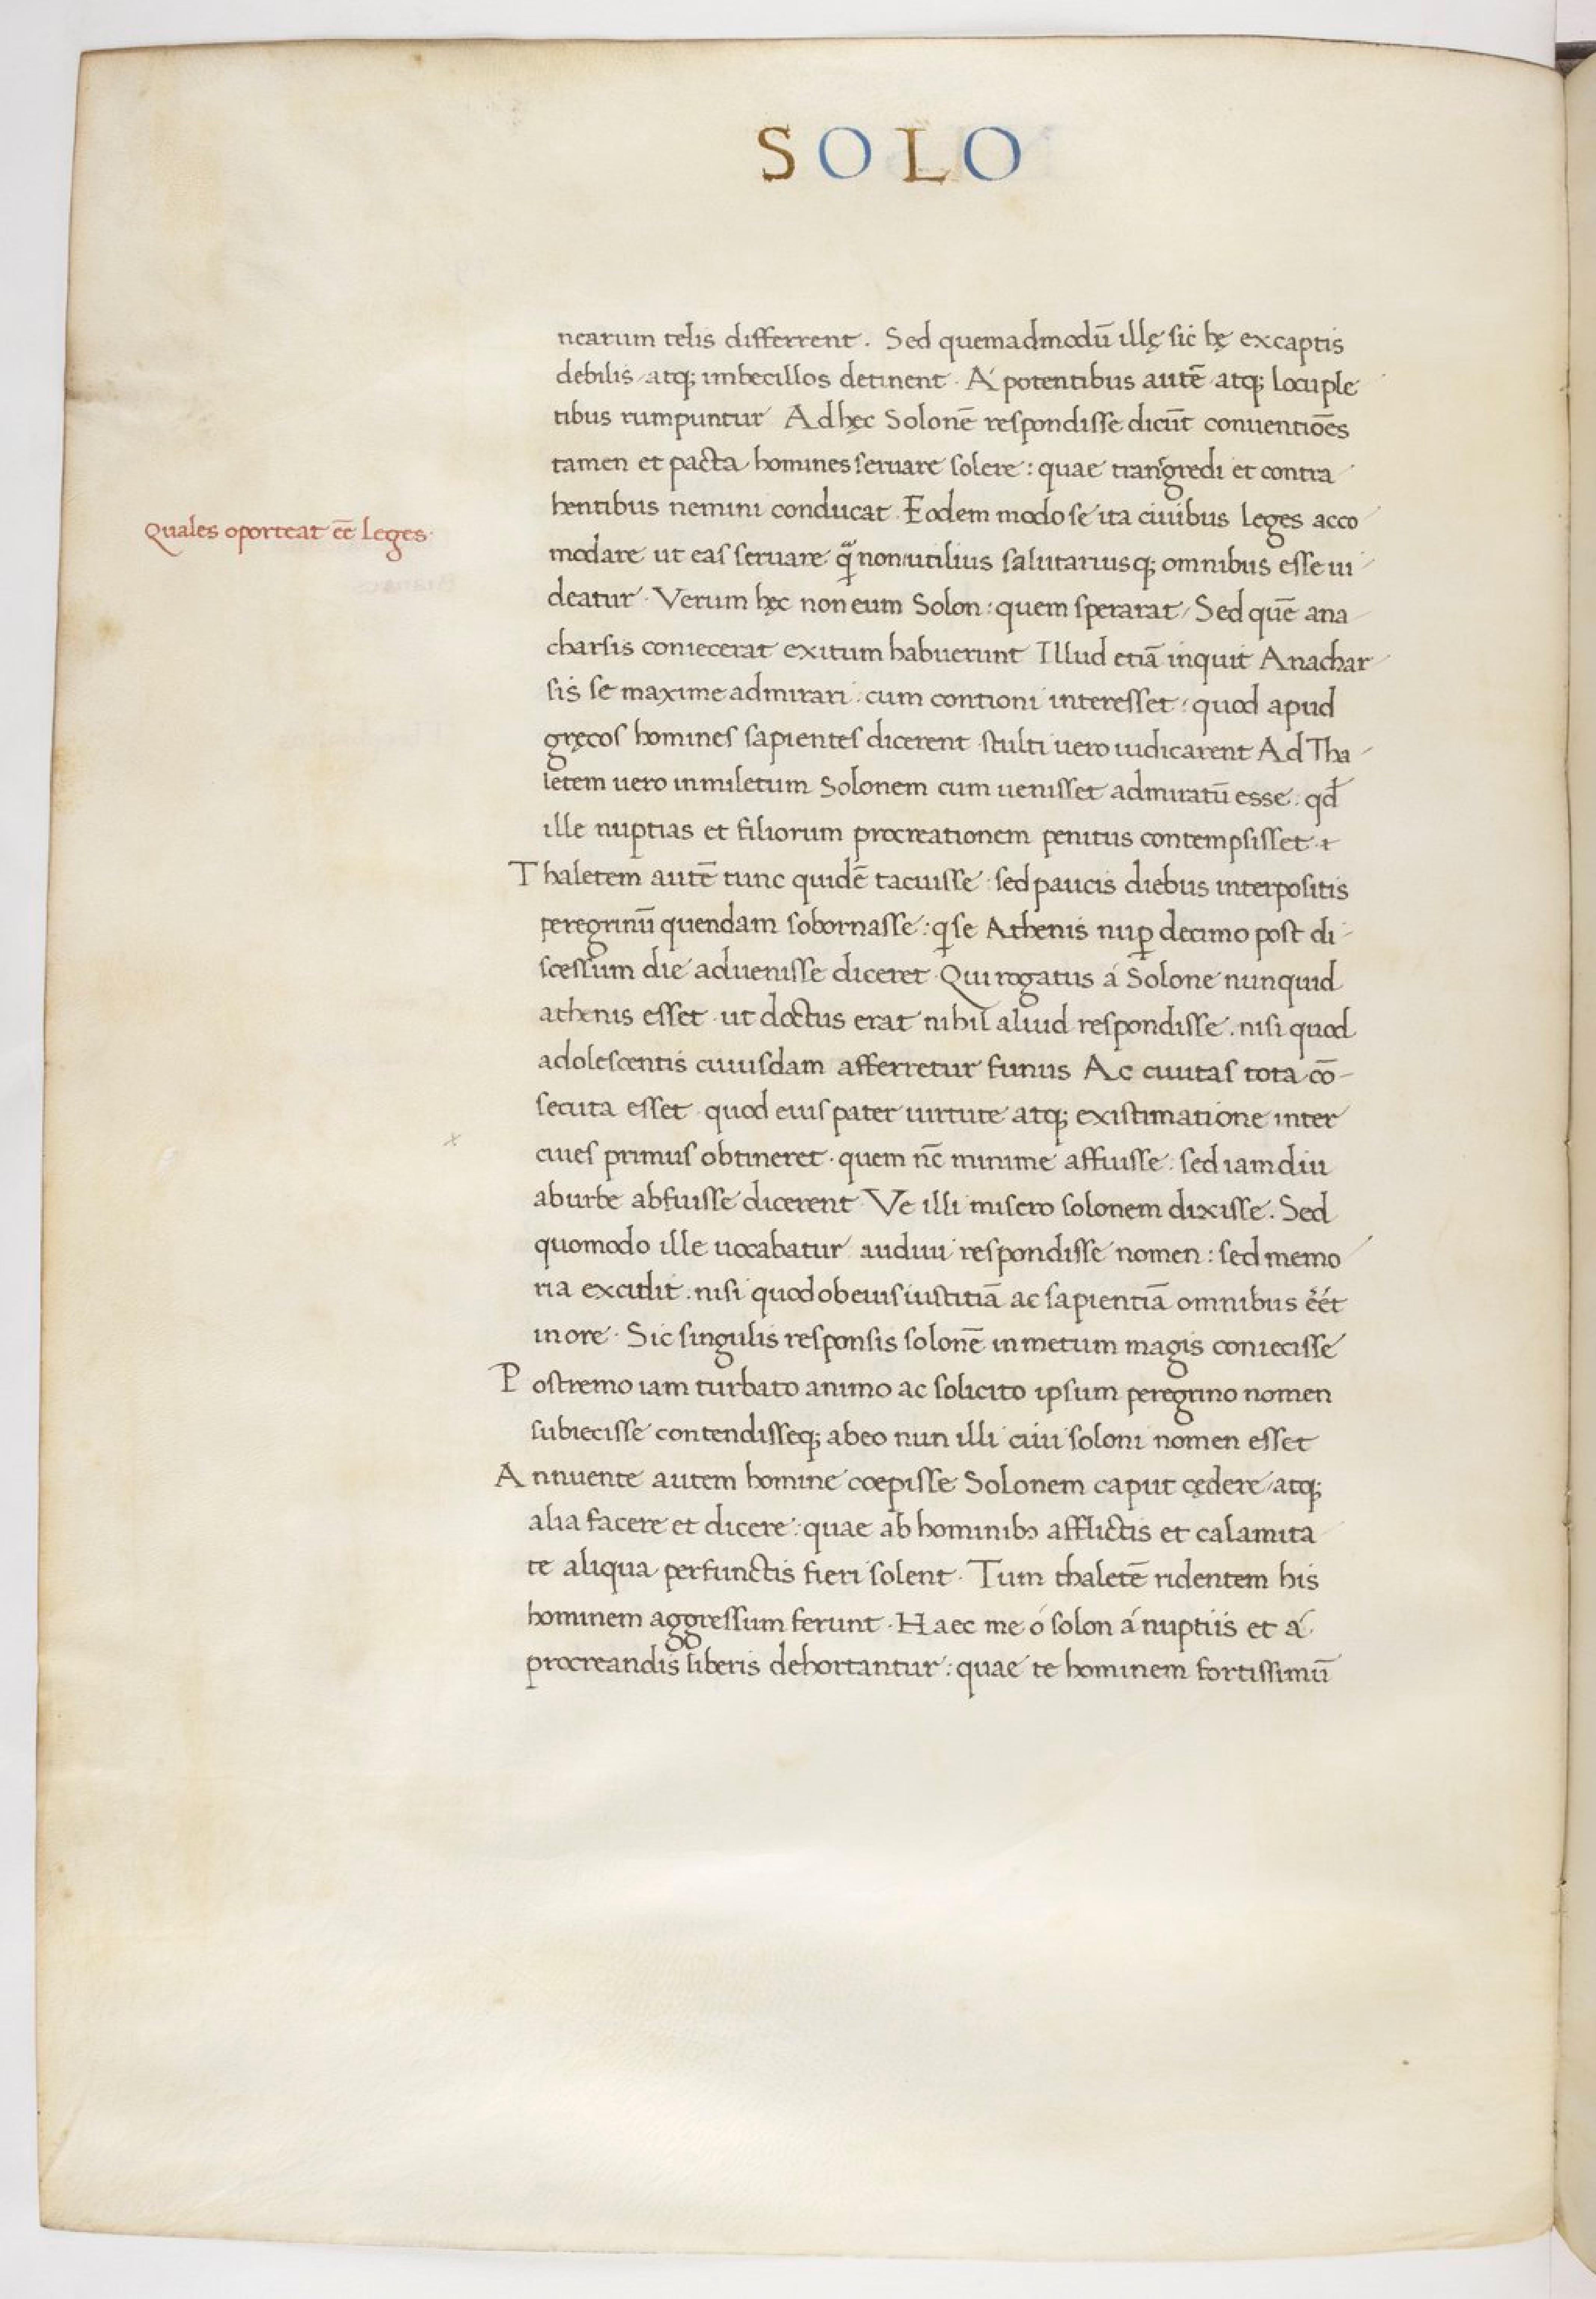 SOLO
nearum telis differrent. Sed quemadmodū illę sic hę ex captis
debiles atq; imbecillos detinent. Á potentibus autē atq; locuple
tibus rumpuntur Ad hęc Solonē respondisse dicūt conuentiōes
tamen et pacta homines seruare solere: quae transgredi et contra
hentibus nemini conducat. Eodem modo se ita ciuibus leges acco
Quales oporteat eē leges.
modare ut eas seruare non utilius salutariusq; omnibus esse ui
deatur. Verum hęc non eum Solon: quem sperarat, Sed quē ana
charsis coniecerat exitum habuerunt Illud etiā inquit Anachar
sis se maxime admirari: cum contioni interesset: quod apud
gręcos homines sapientes dicerent stulti uero iudicarent Ad Tha
letem uero in miletum Solonem cum uenisset admiratū esse: qđ
ille nuptias et filiorum procreationem penitus contempsisset.
Thaletem autē tunc quidē tacuisse: sed paucis diebus interpositis
peregrinū quendam sobornasse: q se Athenis nup decimo post di
scessum die aduenisse diceret. Qui rogatus á Solone nunquid
athenis esset. ut doctus erat nihil aliud respondisse. nisi quod
adolescentis cuiusdam afferretur funus Ac ciuitas tota cō-
secuta esset. quod eius pater uirtute atq; existimatione inter
ciues primus obtineret. quem nc̄ minime affuisse: sed iam diu
ab urbe abfuisse dicerent. Ve illi misero solonem dixisse. Sed
quomodo ille uocabatur. audiui respondisse nomen: sed memo
ria excidit. nisi quod ob eius iustitiā ac sapientiā omnibus eēt
in ore. Sic singulis responsis solonē in metum magis coniecisse
Postremo iam turbato animo ac solicito ipsum peregrino nomen
subiecisse contendisseq; ab eo nun illi ciui soloni nomen esset
Annuente autem homine coepisse Solonem caput cędere, atq;
alia facere et dicere: quae ab hominibɔ afflictis et calamita
te aliqua perfunctis fieri solent. Tum thaletē ridentem his
hominem aggressum ferunt. Haec me ó solon á nuptiis et á
procreandis liberis dehortantur: quae te hominem fortissimū